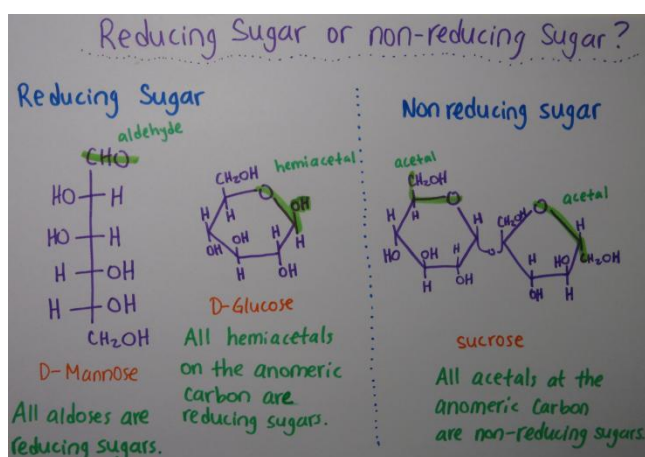 Reducing Sugar or non-reducing Sugar?
Reducing Sugar
aldehyde
CHO
HO H
HO H
H OH
H OH
CH₂OH
D-Mannose
All aldoses are
reducing sugars.
hemiacetal
CH₂OH
O
OH
H
H
H
H
OH
OH
H
H
OH
D-Glucose
All hemiacetals
on the anomeric
carbon are
reducing sugars.
Nonreducing sugar
acetal
CH₂OH
O
H
H
H
H
HO
OH
H
H
OH
O
acetal
CH₂OH
O
H
H
HO
CH₂OH
OH
H
sucrose
All acetals at the
anomeric Carbon
are non-reducing sugars